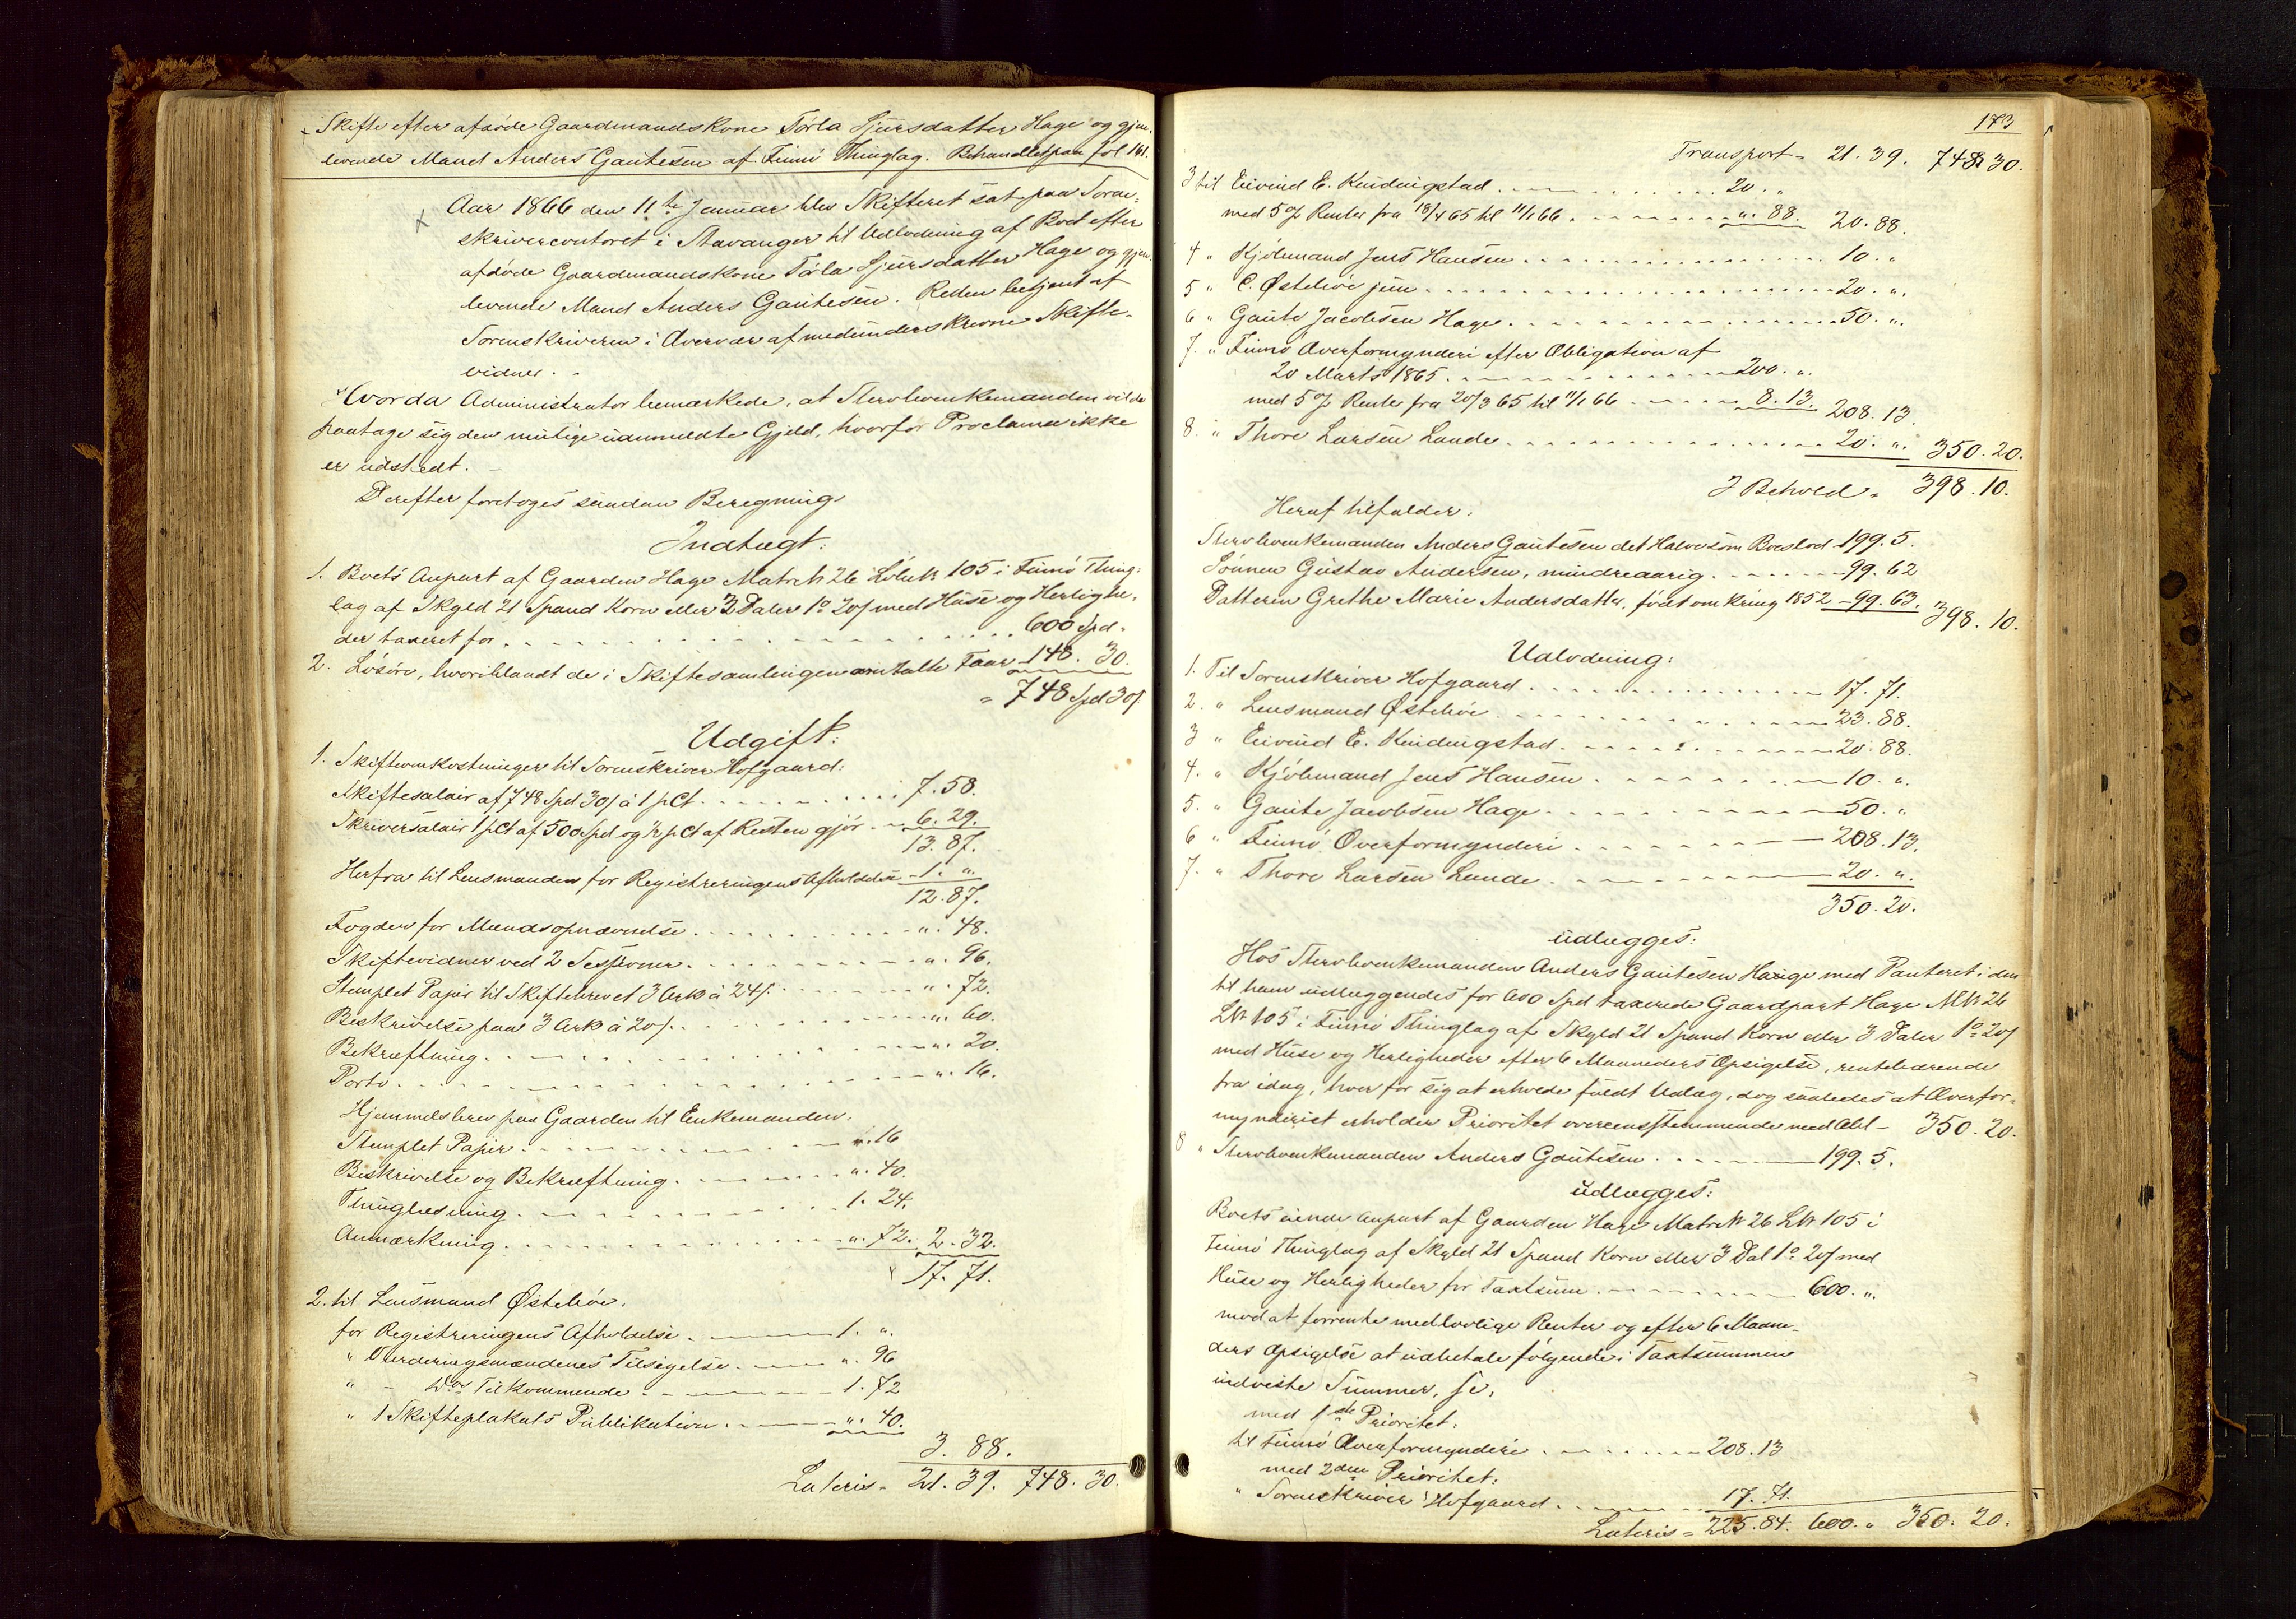 Skifte efter afdøde Gaardmandskone Tørla Sjursdatter Hage og gjen-
levende Mand Anders Gautesen af Finnø Thinglag. Behandlet paa fol 161.
Aar 1866 den 11te Januar blev Skifteret sat paa Soren-
skrivercontoret i Stavanger til Udlodning af Boet efter
afdøde Gaardmandskone Tørla Sjursdatter Hage og gjen-
levende Mand Anders Gautesen. Retten betjent af
Sorenskriveren i Overvær af medunderskrevne Skifte-
vidner.
Hvorda Administrator bemærkede, at Stervboenkemanden vilde
paatage sig den mulige uanmeldte Gjeld, hvorfor Proclama ikke
er udstedt.
Derefter foretoges saadan Beregning
Indtægt:
1. Boets Anpart af Gaarden Hage Matr № 26 Løbe№ 105 i Finnø Thing-
lag af Skyld 21 Spand Korn eller 3 Daler 1o 20/ med Huse og Herlighe-
der taxeret for . . . 600 Spd.
2. Løsøre, hvoriblandt de i Skiftesamlingen omtalte Faar 148. 30.
= 748 Spd 30/.
Udgift:
1. Skifteomkostninger til Sorenskriver Hofgaard:
Skiftesalair af 748 Spd 30/ à 1 pCt . . . 7. 58.
Skriversalair 1 pCt af 500 Spd og ½ pCt af Resten gjør . . 6. 29.
13. 87.
Herfra til Lensmanden for Registreringens Afholdelse - 1. "
12. 87.
Fogden for Mændsopnævnelse . . . ". 48.
Skiftevidner ved 2 Sessioner . . . ". 96.
Stemplet Papir til Skiftebrevet 3 Ark à 24/. . . . ". 72.
Beskrivelse paa 3 Ark à 20/. . . . ". 60.
Bekræftning . . . ". 20.
Porto . . . ". 16.
Hjemmelsbrev paa Gaarden til Enkemanden.
Stemplet Papir . . . ". 16
Beskrivelse og Bekræftning . . . ". 40.
Thinglæsning . . . 1. 24.
Anmærkning . . . ". 72. 2. 32.
17. 71.
2. til Lensmand Østebøe.
for Registreringens Afholdelse . . . 1. ".
" Vurderingsmændenes Tilsigelse . . . ". 96
" - Do Tilkommende . . . 1. 72
" 1 Skifteplakats Publikation . . . ". 40.
3. 88.
Lateris - 21. 39. 748. 30.
173
Transport - 21. 39. 748. 30.
3 til Eivind E. Kindingstad . . . 20. "
med 5 % Renter fra 18/4 65 til 11/1 66 . . . ". 88. 20. 88.
4 " Kjøbmand Jens Hansen . . . 10. "
5 " C. Østebøe jun . . . 20. ".
6 " Gaute Jacobsen Hage . . . 50. ".
7. " Finnø Overformynderi efter Obligation af
20 Marts 1865 . . . 200. ".
med 5 % Renter fra 20/3 65 til 11/1 66 . . . 8. 13. 208. 13.
8. " Thore Larsen Lande . . . 20. ". 350. 20.
I Behold = 398. 10.
Heraf tilfalder:
Stervboenkemanden Anders Gautesen det Halve som Boeslod - 199. 5.
Sønnen Gustav Andersen, mindreaarig . . . 99. 62
Datteren Grethe Marie Andersdatter, født omkring 1852 - 99. 63. 398. 10.
Udlodning:
1. Til Sorenskriver Hofgaard . . . 17. 71.
2. " Lensmand Østebøe . . . 23. 88.
3 " Eivind E. Kindingstad . . . 20. 88.
4. " Kjøbmand Jens Hansen . . . 10. ".
5. " Gaute Jacobsen Hage . . . 50. ".
6 " Finnø Overformynderi . . . 208. 13.
7. " Thore Larsen Lande . . . 20. ".
350. 20.
udlægges:
Hos Stervboenkemanden Anders Gautesen Hage med Panteret i den
til ham udlæggendes for 600 Spd taxerede Gaardpart Hage M№ 26
L№ 105 i Finnø Thinglag af Skyld 21 Spand Korn eller 3 Daler 1o 20/
med Huse og Herligheder efter 6 Maaneders Opsigelse, rentebærende
fra idag, hver for sig at erholde fuldt Udlæg, dog saaledes at Overfor-
mynderiet erholder Prioritet overensstemmende med Obl - 350. 20.
8 " Stervboenkemanden Anders Gautesen . . . 199. 5.
udlægges:
Boets eiende Anpart af Gaarden Hage Matr № 26 L№ 105 i
Finnø Thinglag af Skyld 21 Spand Korn eller 3 Dal 1o 20/ med
Huse og Herligheder for Taxtsum . . . 600. ".
mod at forrente med lovlige Renter og efter 6 Maane-
ders Opsigelse at udbetale følgende i Taxtsummen
indviste Summer, sc.
med 1ste Prioritet:
til Finnø Overformynderi . . . 208. 13
med 2den Prioritet:
" Sorenskriver Hofgaard . . . 17. 71.
Lateris = 225. 84. 600. " 350. 20.